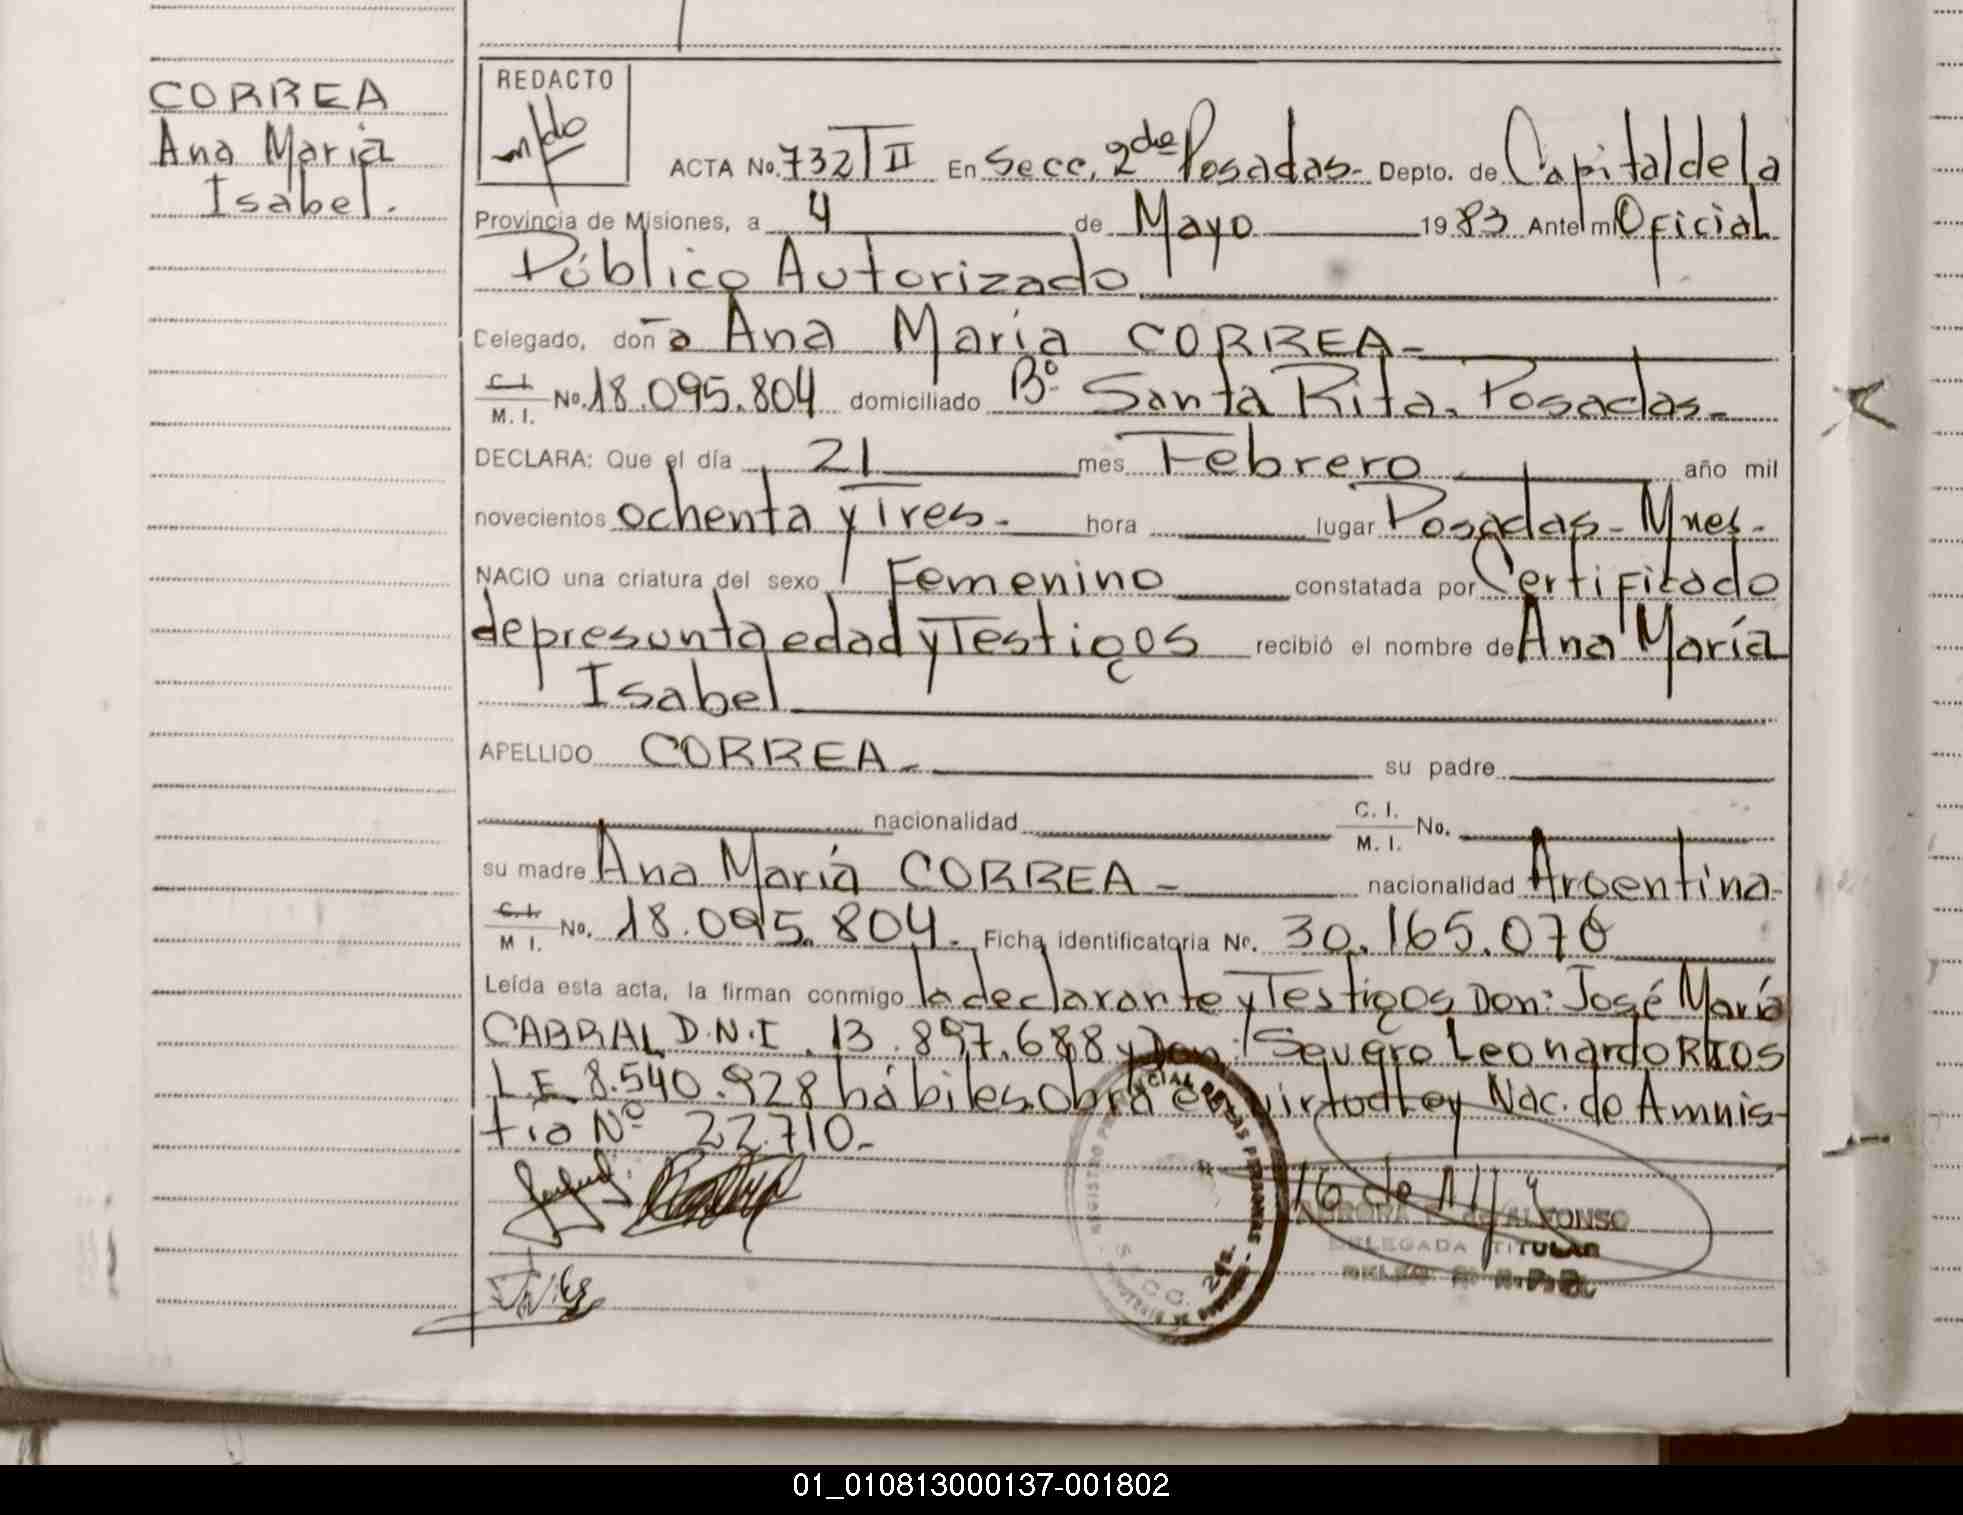 CORREA
Ana María
Isabel.
REDACTO
ACTA No. 732 T II En Secc. 2da Posadas - Depto. de Capital de la
Provincia de Misiones, a 4 de Mayo 1983 Ante mi Oficial
Público Autorizado
Delegado, don a Ana María CORREA -
C. I. M. I. No. 18.095.804 domiciliado Bº Santa Rita. Posadas -
DECLARA: Que el día 21 mes Febrero año mil
novecientos ochenta y Tres - hora lugar Posadas - Mnes -
NACIO una criatura del sexo Femenino constatada por Certificado
de presunta edad y Testigos recibió el nombre de Ana María
Isabel
APELLIDO CORREA - su padre
nacionalidad C. I. M. I. No.
su madre Ana María CORREA - nacionalidad Argentina -
C. I. M I. No. 18.095.804 - Ficha identificatoria Nº. 30.165.076
Leída esta acta, la firman conmigo la declarante y Testigos Don: José María
CABRAL D.N.I. 13.897.688 y Don: Severo Leonardo RIOS
L.E. 8.540.928 hábiles. Obra en virtud Ley Nac. de Amnis-
tia Nº 22.710 -
ALFONSO
DELEGADA TITULAR
01_010813000137-001802